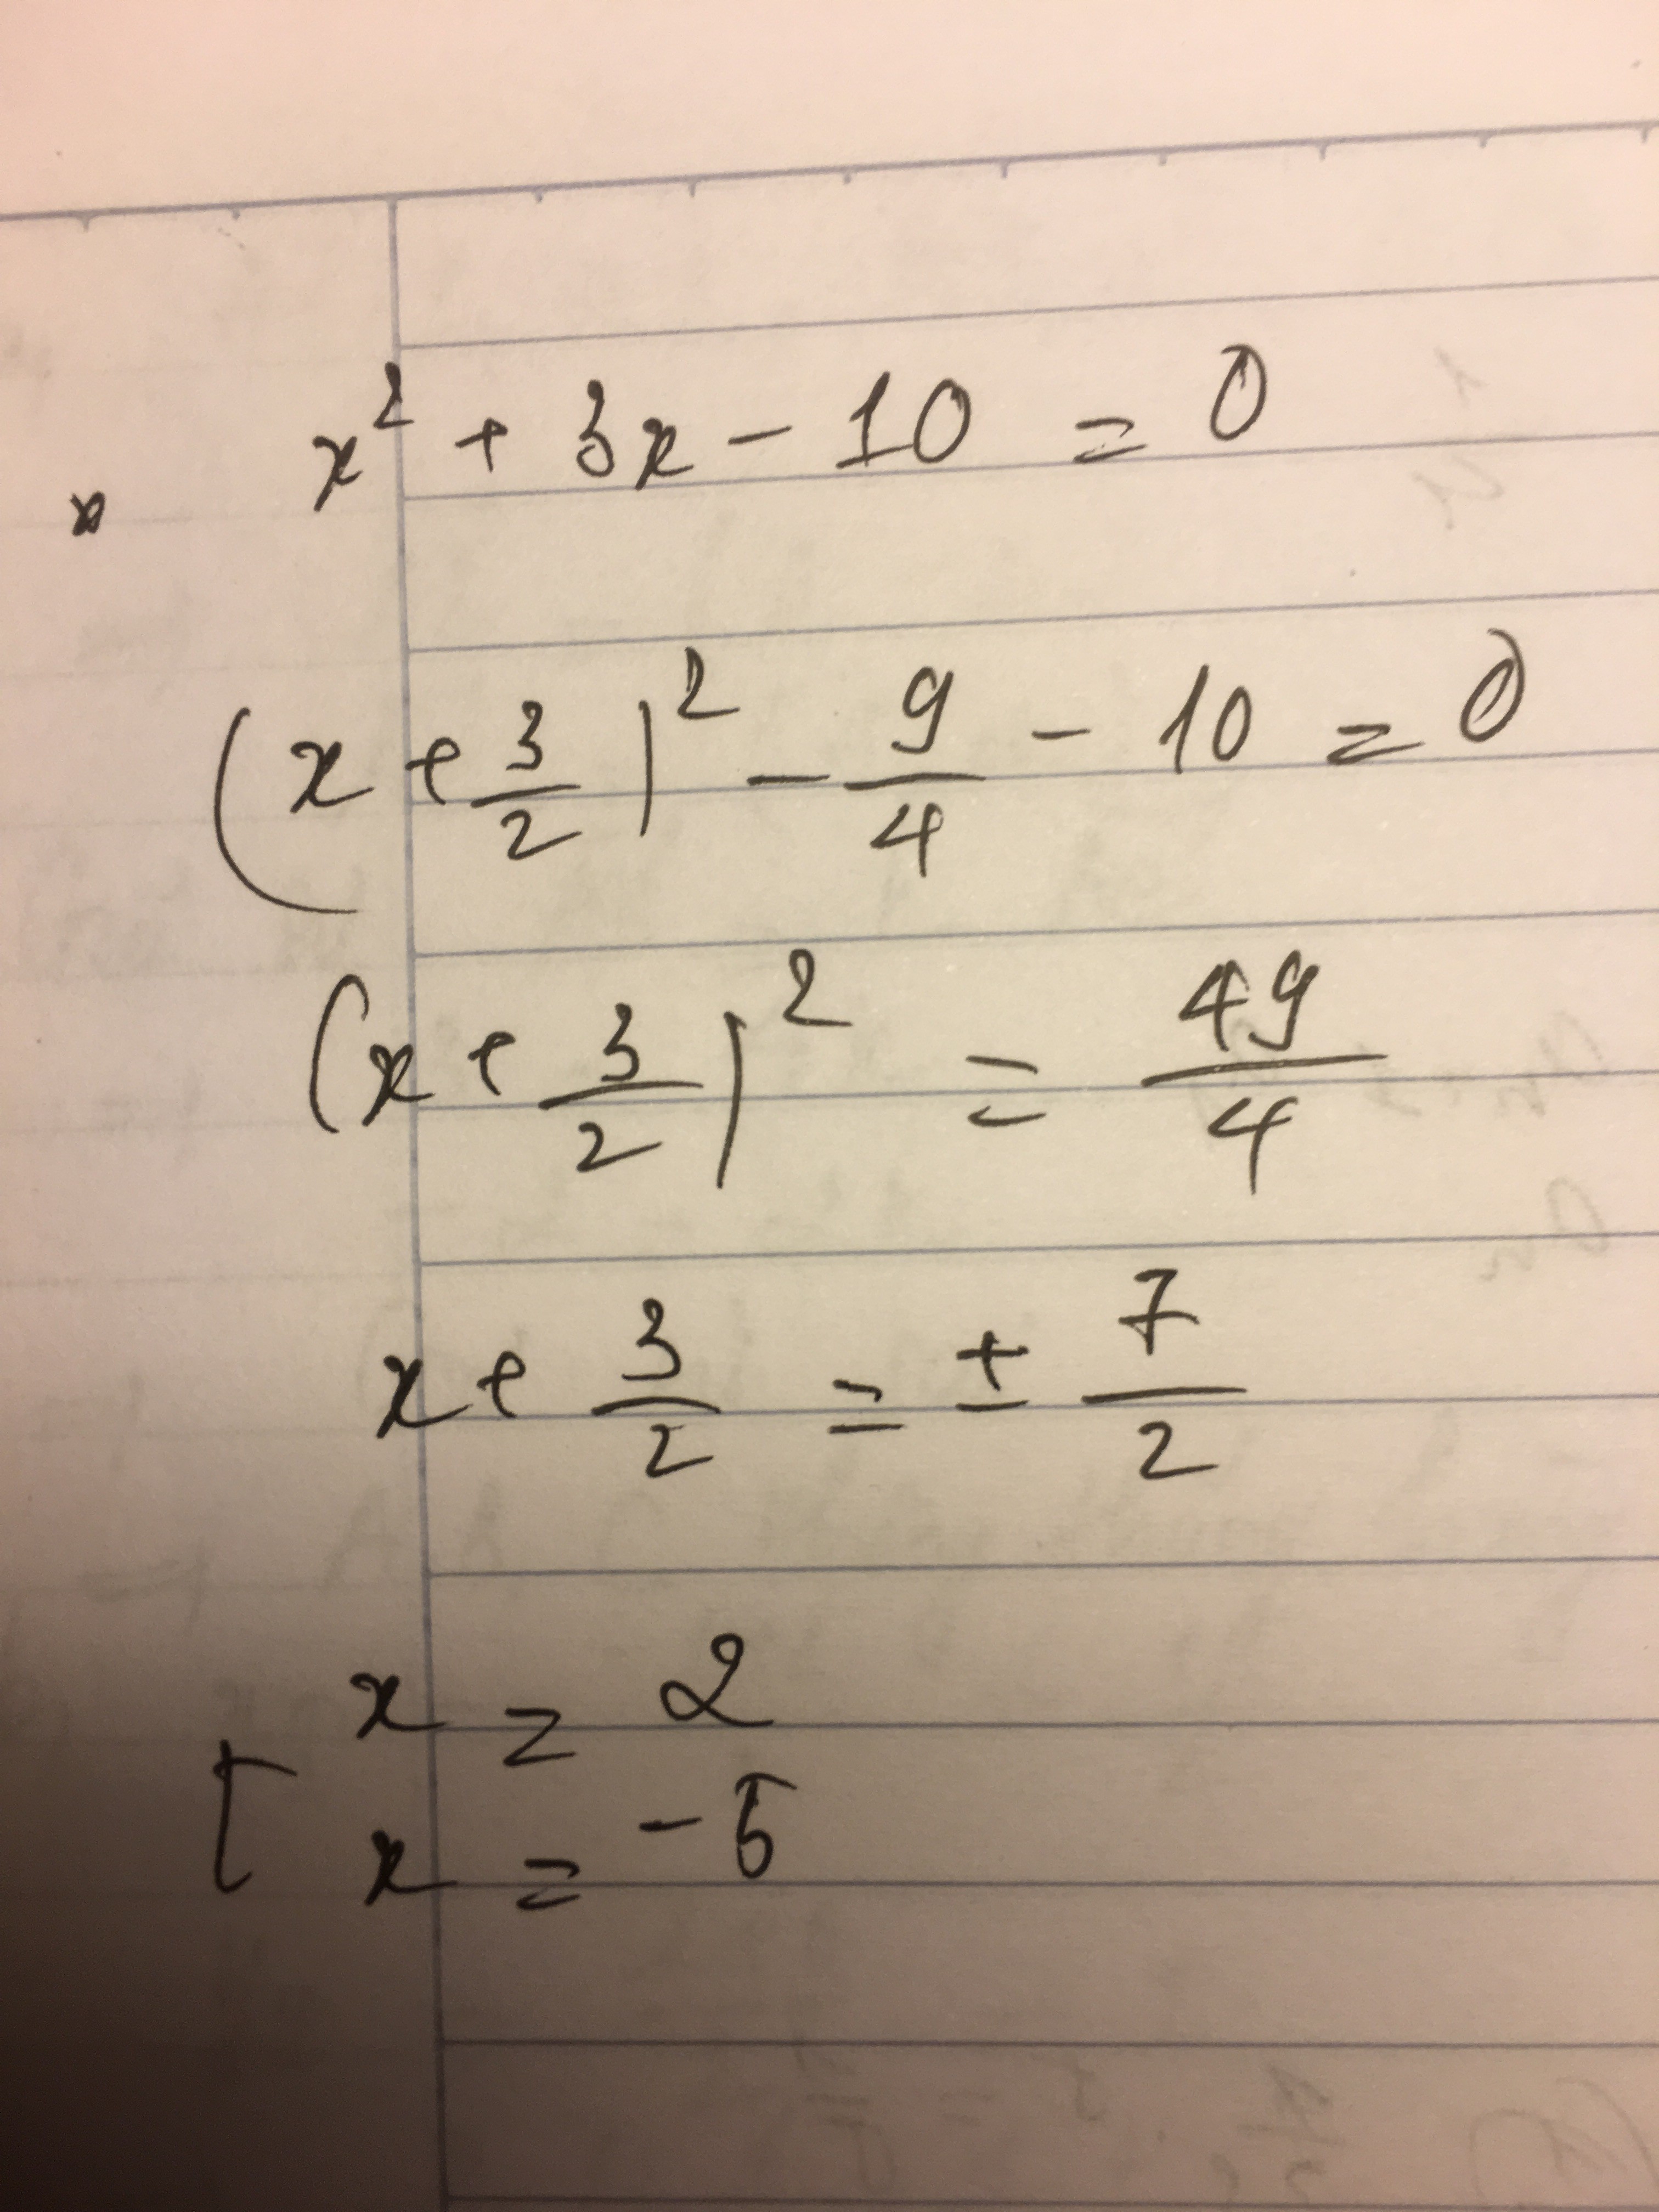 x² + 3x - 10 = 0
(x + 3/2)² - 9/4 - 10 = 0
(x + 3/2)² = 49/4
x + 3/2 = ± 7/2
[ x = 2
x = -5